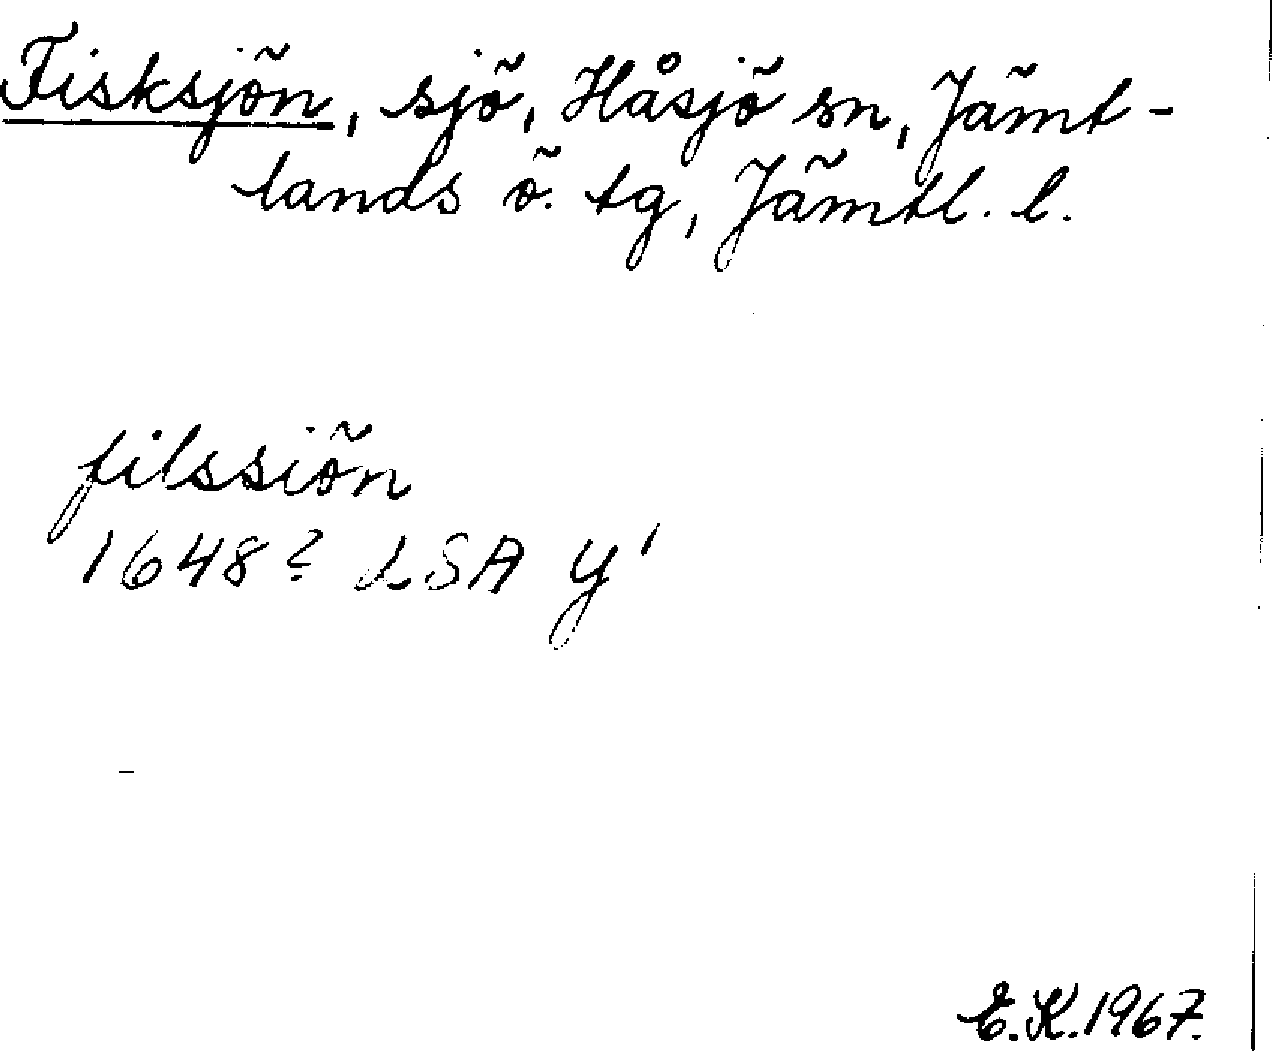 Fisksjön, sjö, Håsjö sn, Jämt-
lands ö. tg, Jämtl. l.
filssiön
1648? LSA Y'
E.K.1967.